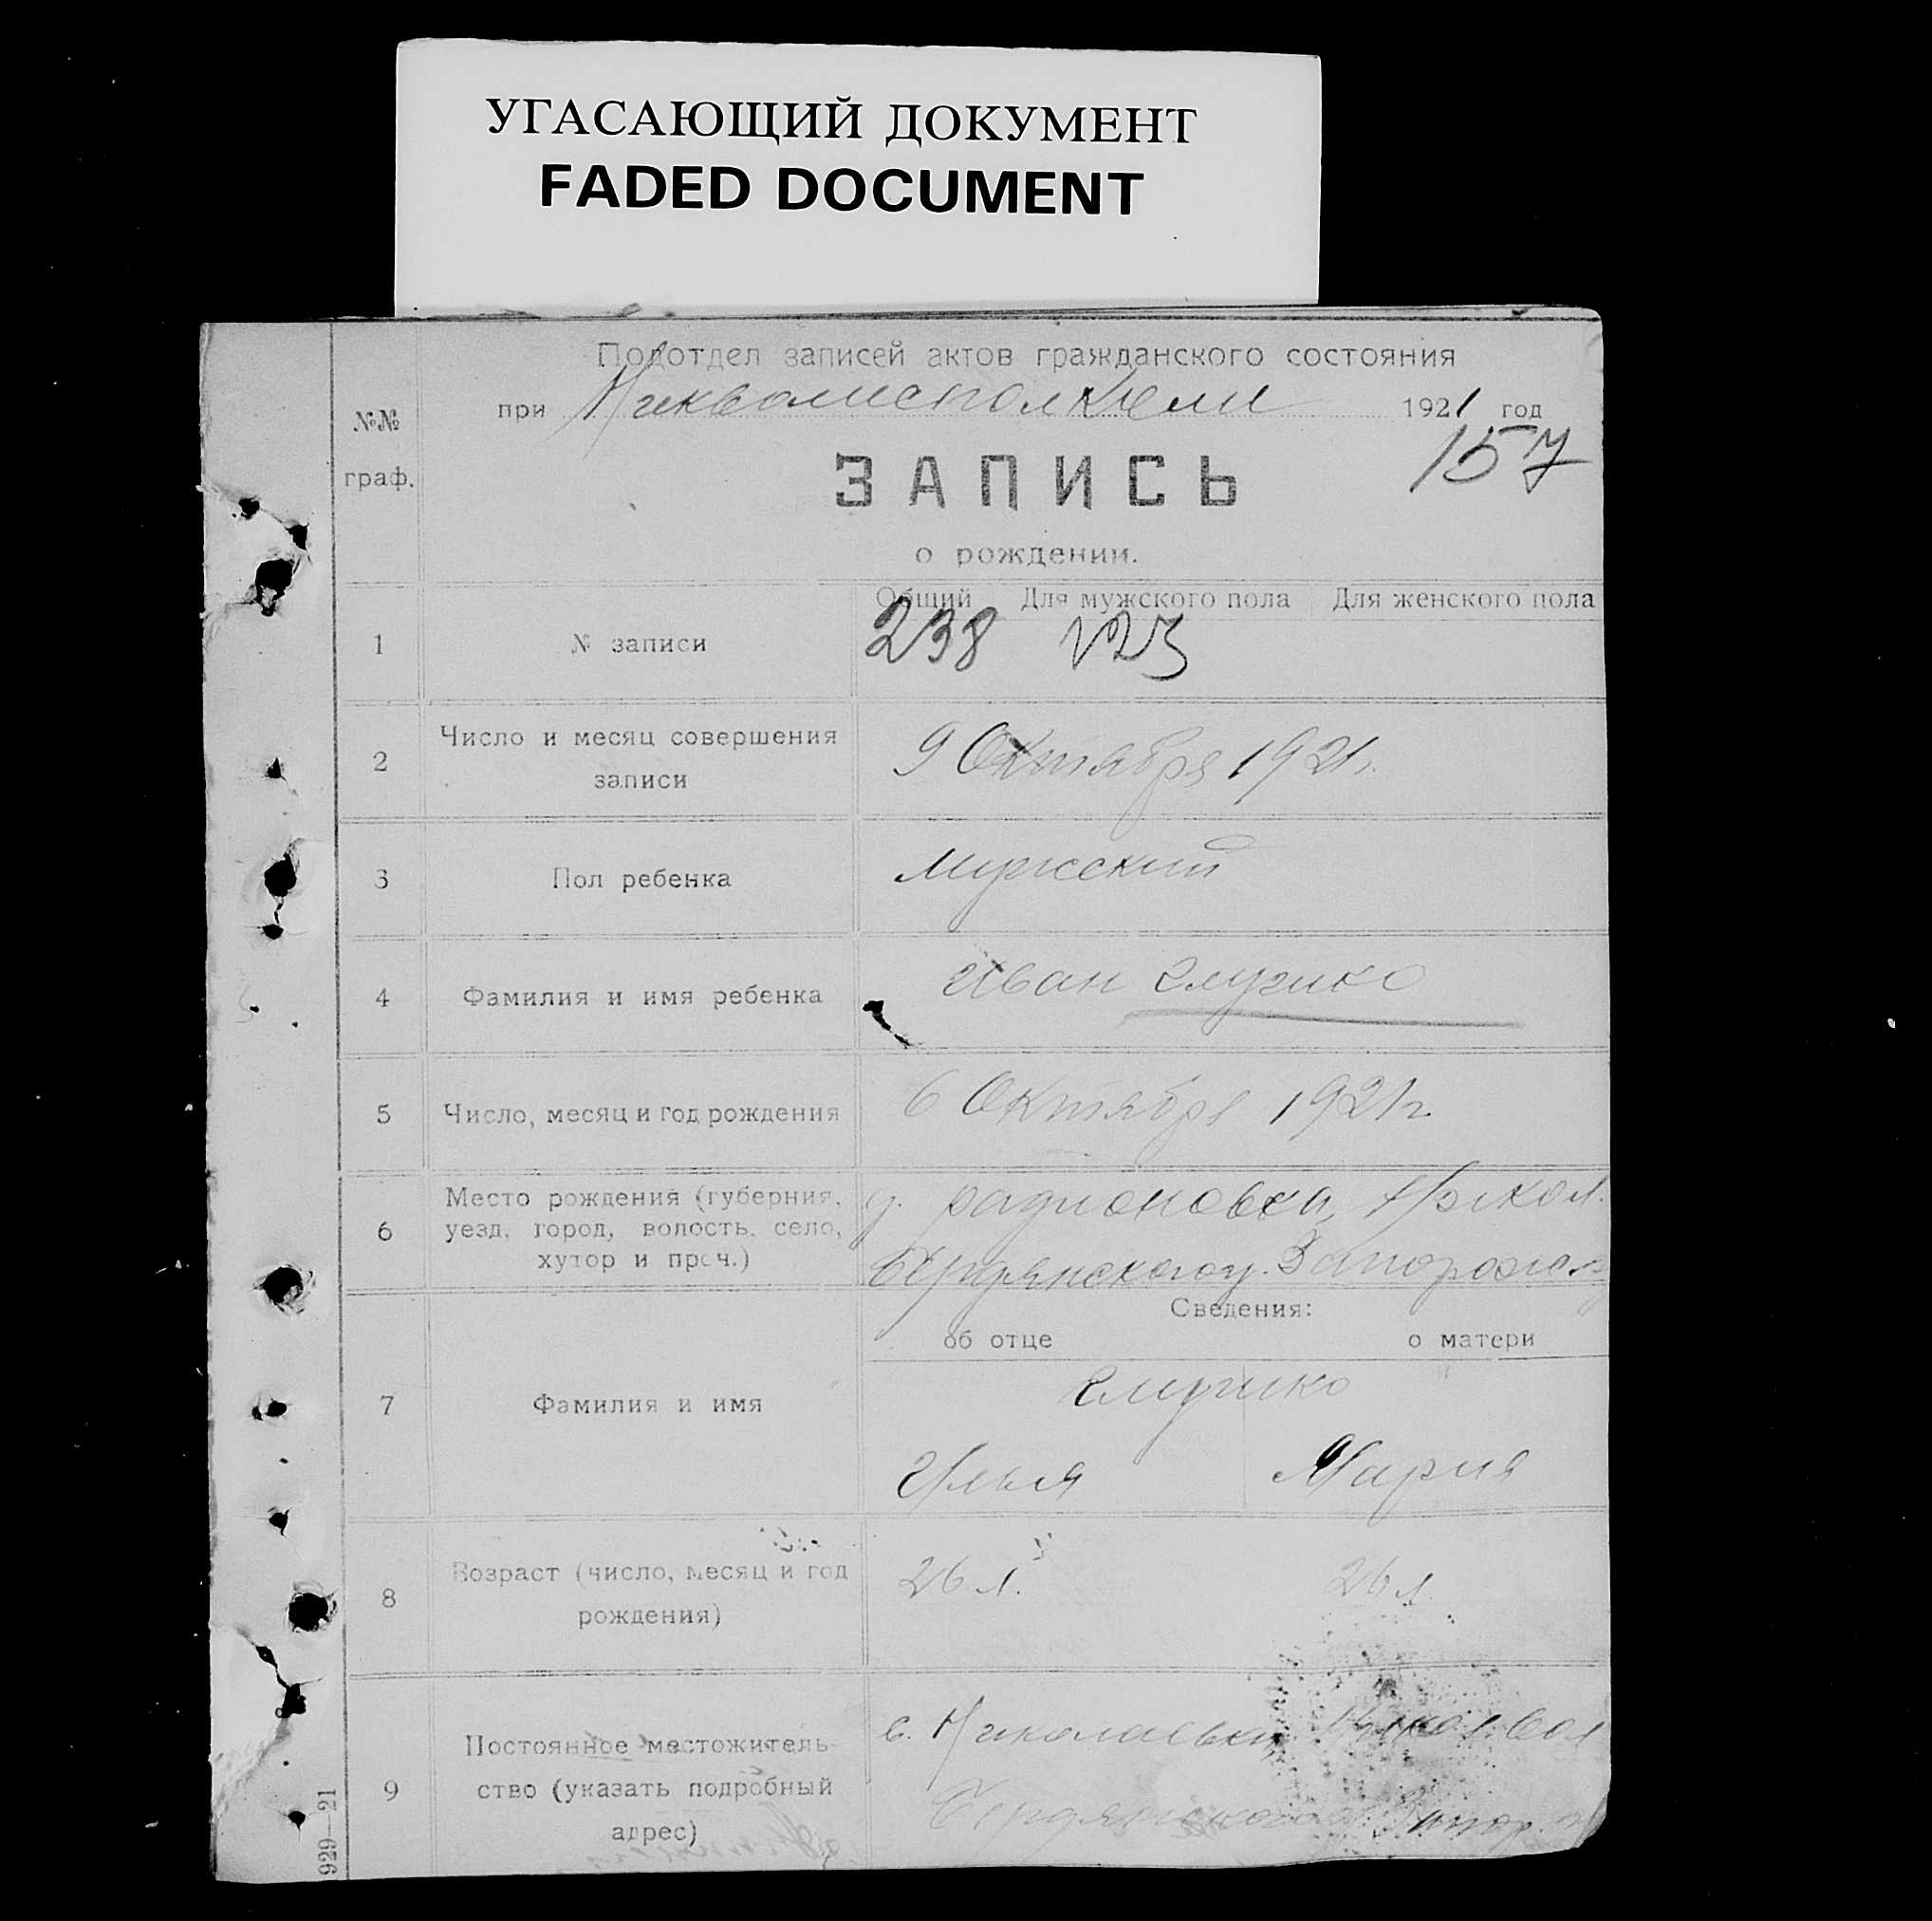 УГАСАЮЩИЙ ДОКУМЕНТ
FADED DOCUMENT
Подотдел записей актов гражданского состояния
при Никволисполкоме 1921 год
№№
граф.
157
ЗАПИСЬ
о рождении.
Общий Для мужского пола Для женского пола
1 № записи 238 123
2 Число и месяц совершения
записи
9 Октября 1921 г.
3 Пол ребенка мужский
4 Фамилия и имя ребенка Иван
5 Число, месяц и год рождения 6 Октября 1921 г
6 Место рождения (губерния,
уезд, город, волость, село,
хутор и проч.)
д. Радионовка, Никол.
Бердянского у. Запорож.
Сведения:
об отце о матери
7 Фамилия и имя
Илья Мария
8 Возраст (число, месяц и год
рождения)
26 л. 26 л.
9 Постоянное местожитель-
ство (указать подробный
адрес)
с. Николаевка, Никол. вол
Бердянского Запор. г
929—21